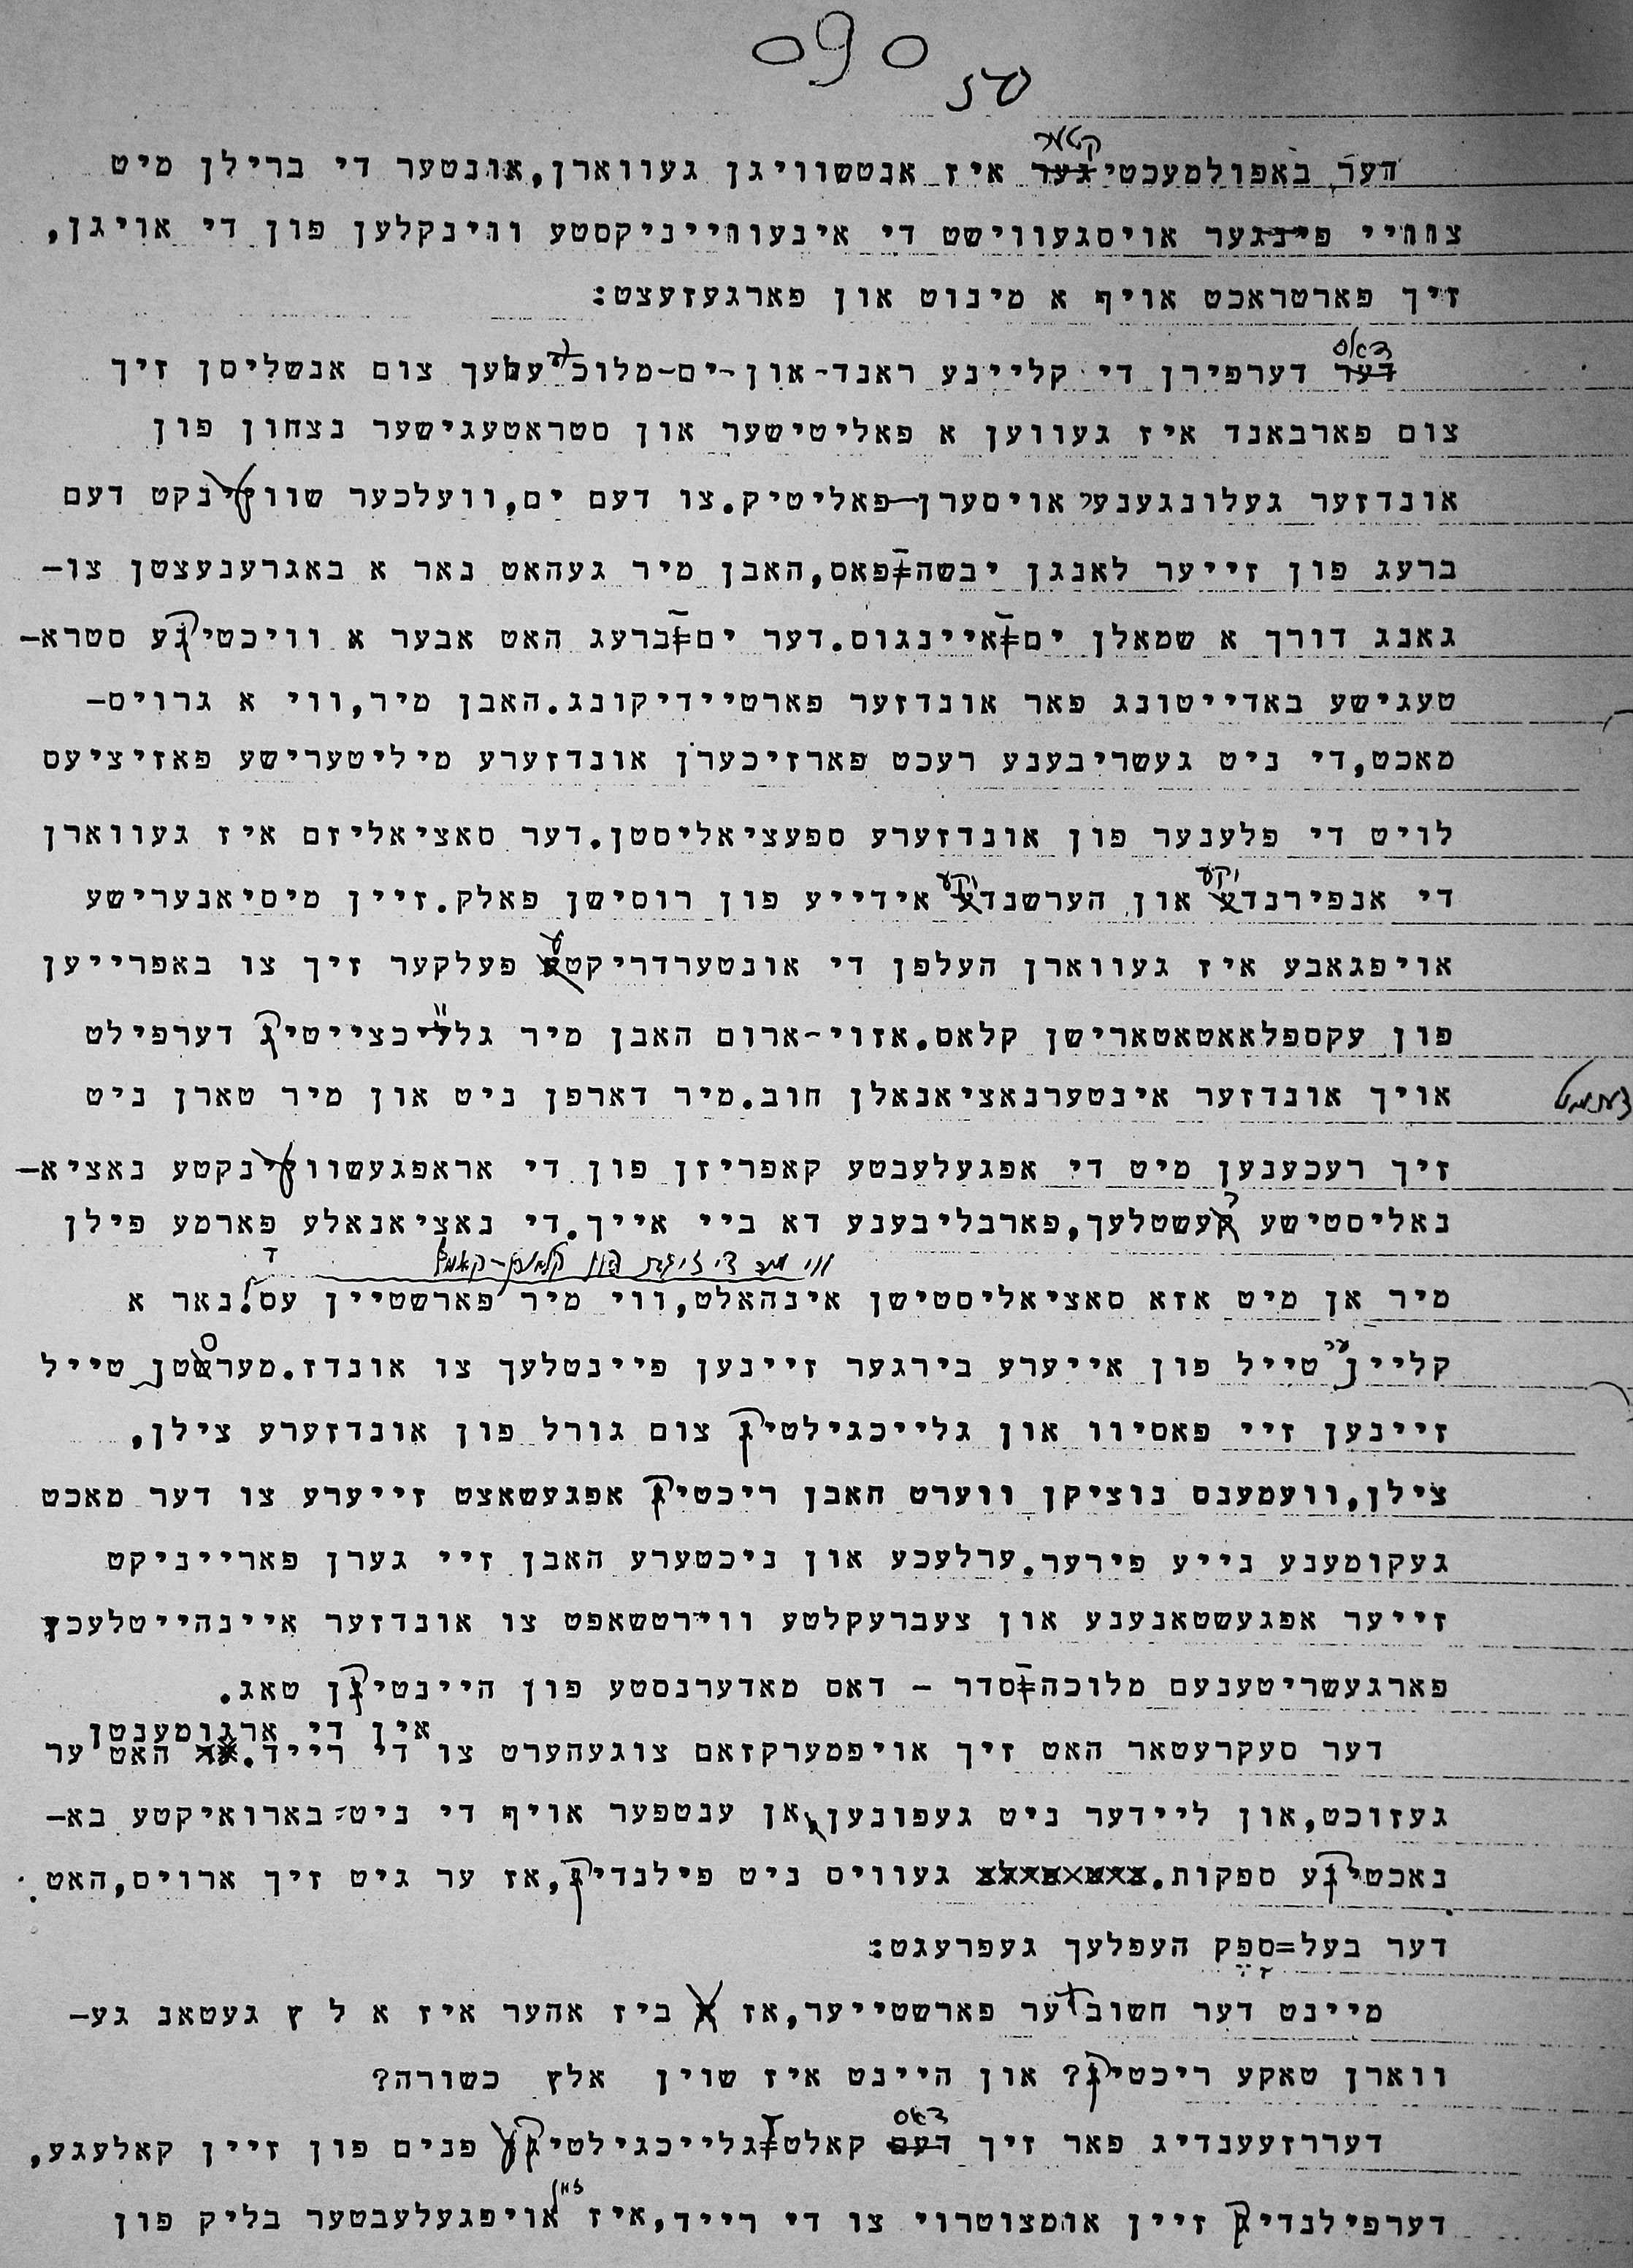 090
דער באפולמעכטיגער איז אנטשוויגן געווארן,אונטער די ברילן מיט
צוויי פינגער אויסגעווישט די אינעווייניקסטע ווינקלען פון די אויגן,
זיך פארטראכט אויף א מינוט און פארגעזעצט:
דאס
דער דערפירן די קליינע ראנד-און-ים-מלוכהלעך צום אנשליסן זיך
צום פארבאנד איז געווען א פאליטישער און סטראטעגישער נצחון פון
אונדזער געלונגענער אויסערן-פאליטיק.צו דעם ים,וועלכער שווינקט דעם
ברעג פון זייער לאנגן יבשה-פאס,האבן מיר געהאט נאר א באגרענעצטן צו-
גאנג דורך א שמאלן ים-איינגוס.דער ים-ברעג האט אבער א וויכטיקע סטרא-
טעגישע באדייטונג פאר אונדזער פארטיידיקונג.האבן מיר,ווי א גרויס-
מאכט,די ניט געשריבענע רעכט פארזיכערן אונדזערע מיליטערישע פאזיציעס
לויט די פלענער פון אונדזערע ספעציאליסטן.דער סאציאליזם איז געווארן
די אנפירנדיקע און הערשנדיקע אידייע פון רוסישן פאלק.זיין מיסיאנערישע
אויפגאבע איז געווארן העלפן די אונטערדריקטע פעלקער זיך צו באפרייען
פון עקספלאאטאטארישן קלאס.אזוי-ארום האבן מיר גלייכצייטיק דערפילט
אויך אונדזער אינטערנאציאנאלן חוב.מיר דארפן ניט און מיר טארן ניט
זיך רעכענען מיט די אפגעלעבטע קאפריזן פון די אראפגעשווינקטע נאציא-
נאליסטישע רעשטלעך,פארבליבענע דא ביי אייך.די נאציאנאלע פארמע פילן
מיר אן מיט אזא סאציאליסטישן אינהאלט,ווי מיר פארשטיין עס.נאר א
קליין טייל פון אייערע בירגער זיינען פיינטלעך צו אונדז.מערסטן טייל
זיינען זיי פאסיוו און גלייכגילטיק צום גורל פון אונדזערע צילן,
צילן,וועמענס נוציקן ווערט האבן ריכטיק אפגעשאצט זייערע צו דער מאכט
געקומענע נייע פירער.ערלעכע און ניכטערע האבן זיי גערן פארייניקט
זייער אפגעשטאנענע און צעברעקלטע ווירטשאפט צו אונדזער איינהייטלעכן
פארגעשריטענעם מלוכה-סדר – דאס מאדערנסטע פון היינטיקן טאג.
אין די ארגומענטן
דער סעקרעטאר האט זיך אויפמערקזאם צוגעהערט צו די רייד. האט ער
געזוכט,און ליידער ניט געפונען,אן ענטפער אויף די ניט=בארואיקטע בא-
נאכטיקע ספקות. געוויס ניט פילנדיק,אז ער גיט זיך ארויס,האט
דער בעל=ספק העפלעך געפרעגט:
מיינט דער חשובער פארשטייער,אז ביז אהער איז א ל ץ געטאנ גע-
ווארן טאקע ריכטיק? און היינט איז שוין אלץ כשורה?
דאס
דערזעענדיג פאר זיך דעם קאלט-גלייכגילטיק פנים פון זיין קאלעגע,
דערפילנדיק זיין אומצוטרוי צו די רייד,איז אויפגעלעבטער בליק פון